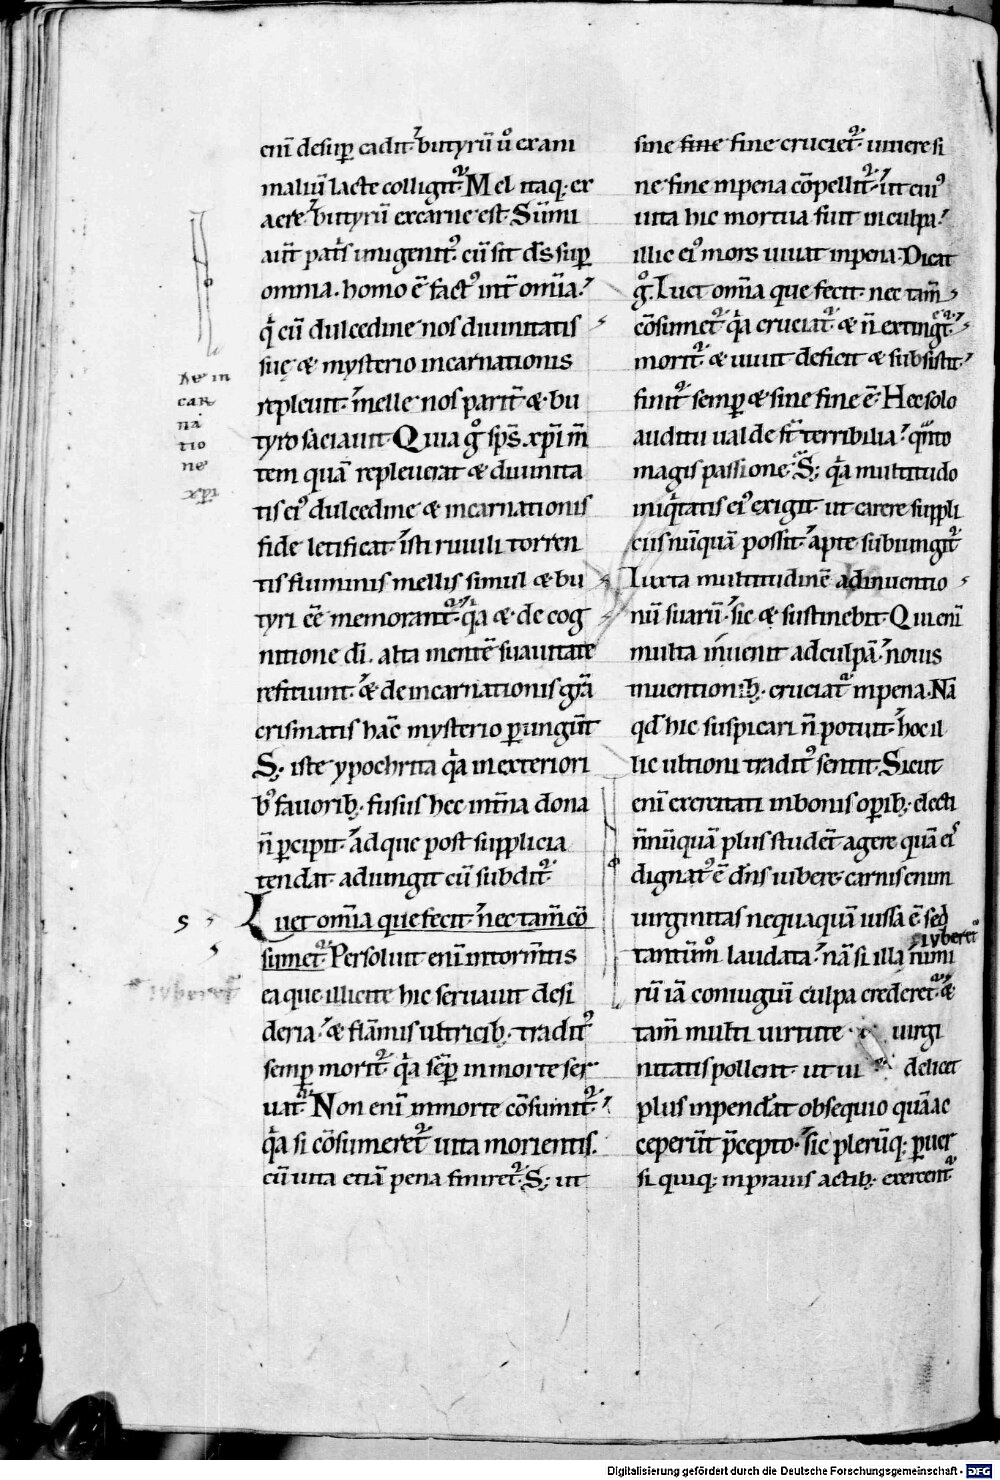 enī desup̱ cadit· butyrū ů ex ani
maliū lacte colligit᷑· Mel itaq; ex
aere· butyrū ex carne est· Sūmi
aūt patˢs unigenitꝰ cū sit dˢs sup̱
omnia· homo ē factꝰ int̄ om̄ia·
q̇ cū dulcedine nos diuinitatis
suę & mysterio incarnationis
repleuit· melle nos parit̄ & bu
tyro saciauit· Quia g̊ sp̄s xp̄i m̄
tem quā repleuerat & diuinita
tis eiꝰ dulcedine & incarnationis
fide letificat· isti riuuli torren
tis fluminis mellis simul & bu
tyri eē memorant᷑· q̇a & de cog
nitione dī· alta mentē suauitate
reficiunt· & de incarnationis gr̄a
crismatis hac̄ mysterio p̱ungūt
S; iste ypochrita q̇a in exteriori
bꝰ fauorib; fusus hec int̄na dona
n̄ p̱cipit· ad que post supplicia
tendat· adiungit cū subdit᷑·
Luet om̄ia que fecit· nec tam̄ cō
sumet᷑· Persoluit enī in torm̄tis
ea que illicite hic seruauit desi
deria· & flāmis ultricib; traditꝰ
semp̱ morit᷑· q̇a sēp̱ in morte ser
uat᷑· Non enī in morte cōsumit᷑·
q̇a si cōsumeret᷑ uita morientis·
cū uita etiā pena finiret᷑· S; ut
de in
car
na
tio
ne
xp̄i
S
iuberet᷑
sine fine fine cruciet᷑· uiuere si
ne fine in pena cōpellit᷑· ut cuiꝰ
uita hic mortua fuit in culpa·
illic eiꝰ mors uiuat in pena· Dicat
g̊· Luet om̄ia que fecit· nec tam̄
cōsumet᷑· q̇a cruciat᷑ & n̄ extingit᷑·
morit᷑ & uiuit· deficit & subsistit·
finit᷑ semp̱ & sine fine ē· Hec solo
auditu ualde st̄ terribilia· q̄nto
magis passione· S; q̇a multitudo
iniq̇tatis eiꝰ exigit· ut carere suppli
ciis nūquā possit· apte subiungit᷑
Iuxta multitudinē adinuentio
nū suarū· sic & sustinebit· Qui enī
multa inuenit ad culpā· nouis
inuentionib; cruciat᷑ in pena· Nā
qd̄ hic suspicari n̄ potuit· hoc il
lic ultioni traditꝰ sentit· Sicut
enī exercitati in bonis op̱ib; electi
nōnūquā plus studēt agere quā eis
dignatꝰ ē dn̄s iubere· carnis enim
uirginitas nequaquā iussa ē· sed
tantūm̊ laudata· nā si illa iuberet᷑ nimi
rū iā coniugiū culpa crederet᷑· &
tam̄ multi uirtute uirgi
nitatis pollent· ut ui delicet
plus inpendāt obsequio quā ac
ceperūt p̄cepto· sic plerūq; p̱uer
si quiq; in prauis actib; exercent᷑